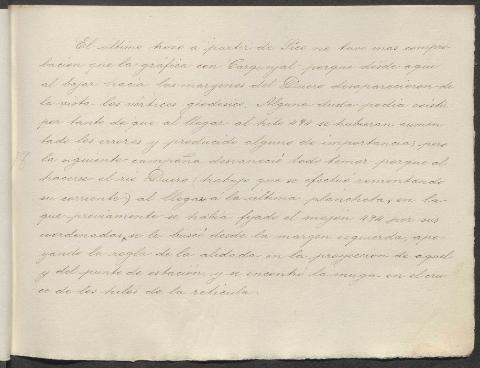 El último trozo a partir de Pico no tuvo mas compro-
bacion que la gráfica con Carguyal porque desde aqui
al bajar hacia las margenes del Duero desaparecieron de
la vista los vertices geodesicos. Alguna duda podia existir
por tanto de que al llegar al hito 494 se hubieran aumen-
tado los errores y producido alguno de importancia; pero
la siguiente campaña desvaneció todo temor, porque al
hacerse el rio Duero (trabajo que se efectuó remontando
su corriente) al llegar á la última plancheta, en la
que previamente se habia fijado el mojon 494 por sus
coordenadas, se le buscó desde la margen izquierda, apo-
yando la regla de la alidada en la proyeccion de aquel
y del punto de estación, y se encontró la muga en el cru-
ce de los hilos de la reticula.